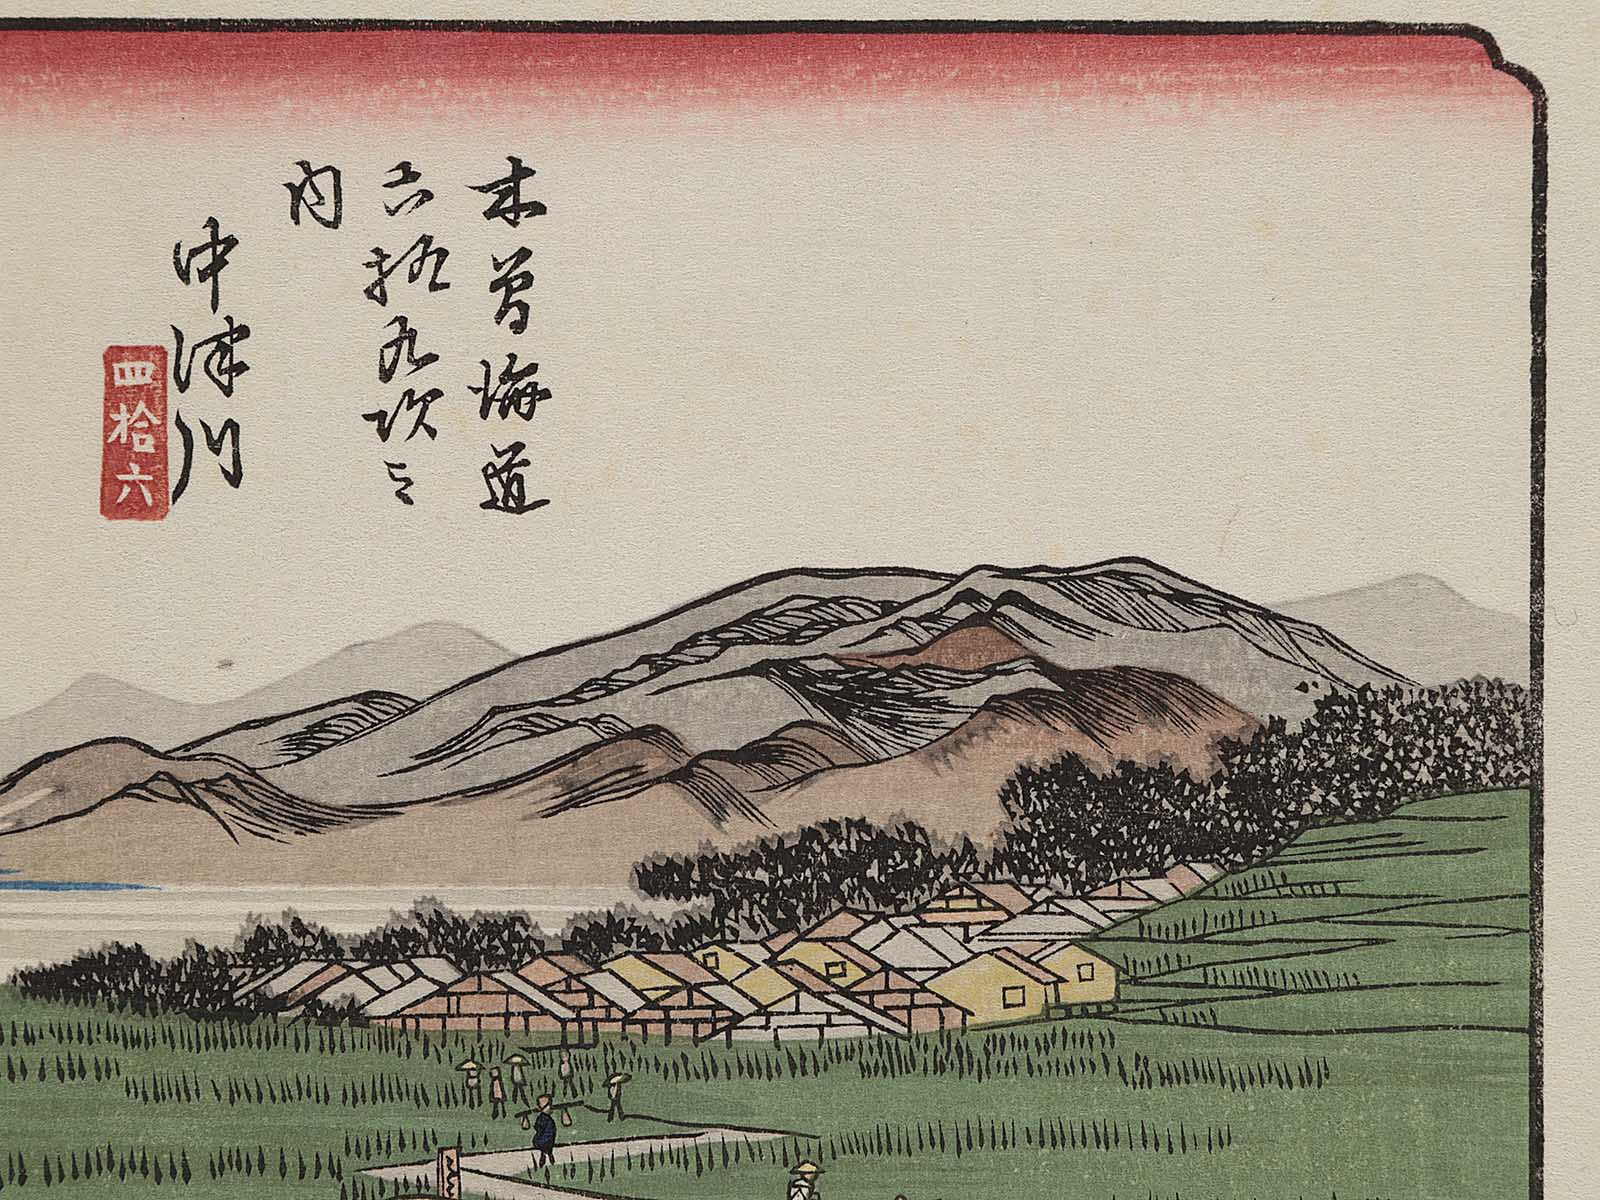 木曽海道
六拾九次之
内
中津川
四拾六